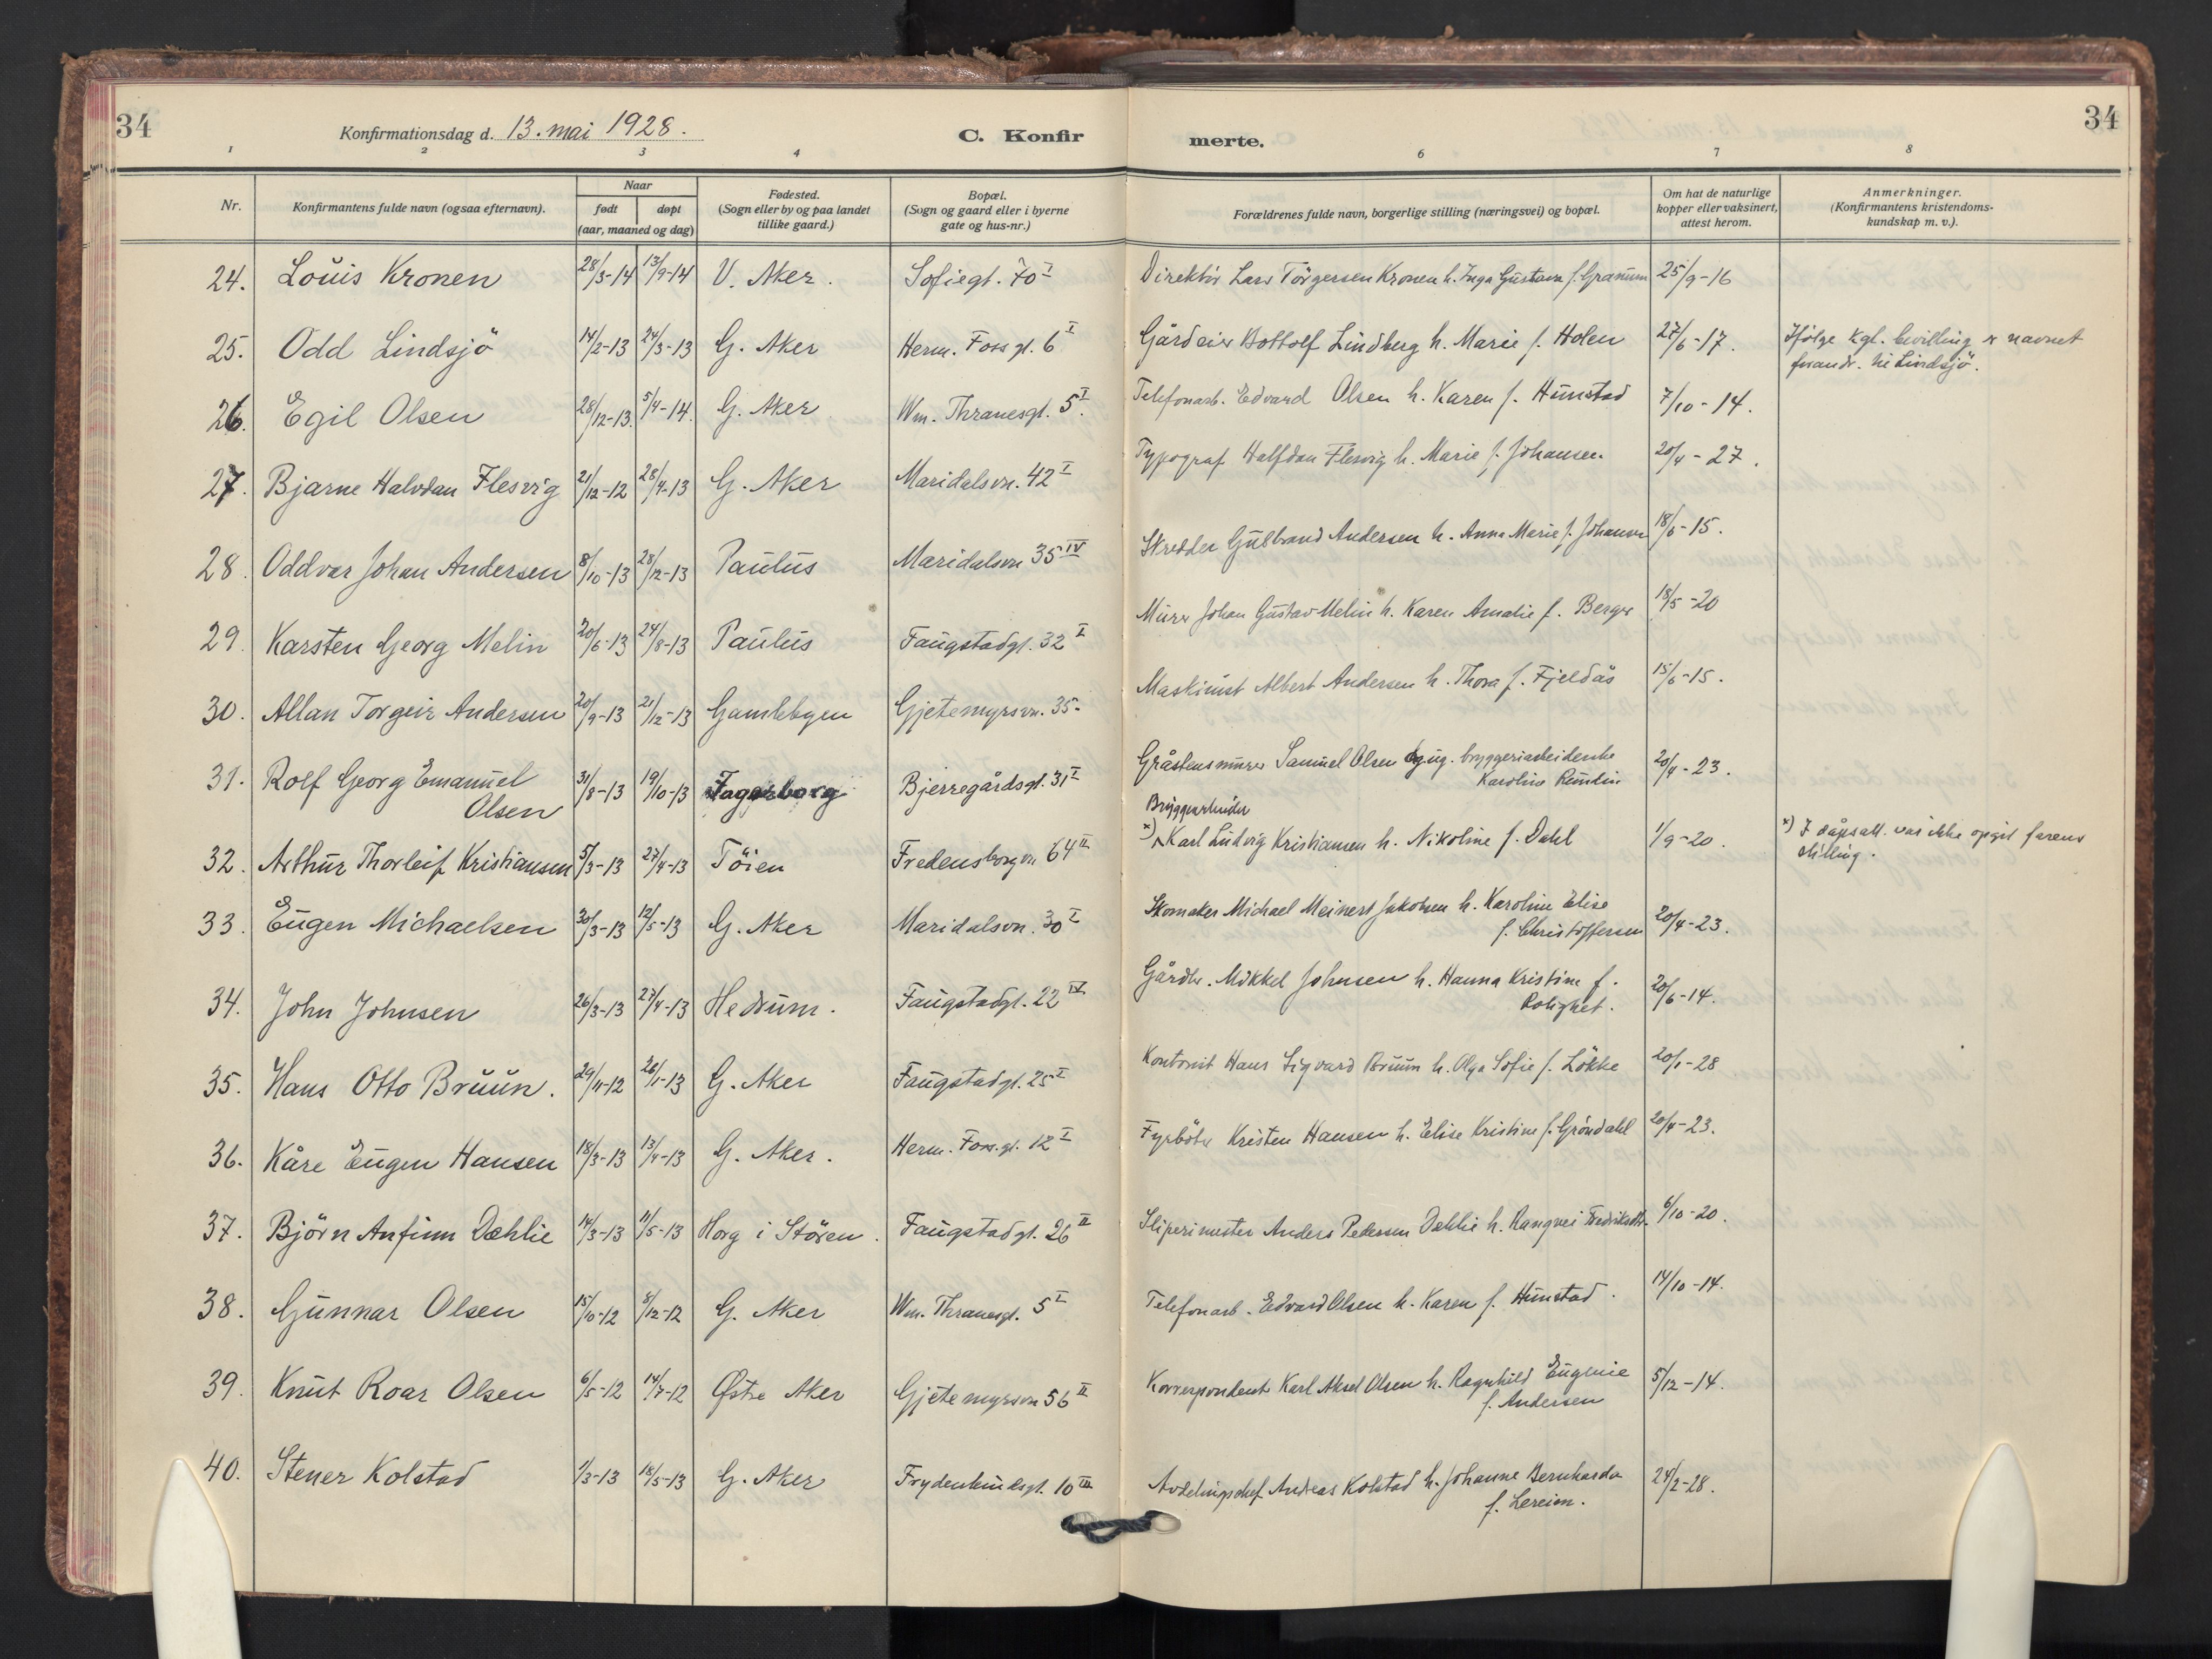 34
Konfirmationsdag d. 13. mai 1928.
C. Konfir
merte.
34
1 2 3 4 6 7 8
Nr.
Konfirmantens fulde navn (ogsaa efternavn).
Naar
født døpt
(aar, maaned og dag)
Fødested.
(Sogn eller by og paa landet
tillike gaard.)
Bopæl.
(Sogn og gaard eller i byerne
gate og hus-nr.)
Forældrenes fulde navn, borgerlige stilling (næringsvei) og bopæl.
Om hat de naturlige
kopper eller vaksinert,
attest herom.
Anmerkninger.
(Konfirmantens kristendoms-
kundskap m. v.).
24. Louis Kronen 28/3-14 13/9-14 V. Aker. Sofiegt. 70 I Direktör Lars Törgersen Kronen h. Inga Gustava f. Granum 25/9-16
25. Odd Lindsjö 14/2-13 24/3-13 G. Aker Herm. Foss gt. 6 I Gårdeier Bottolf Lindberg h. Marie f. Holen 27/6-17. Ifölge kgl. bevilling er navnet
forandr. til Lindsjö.
26. Egil Olsen 28/12-13. 5/4-14. G. Aker Wm. Thranesgt. 5 I. Telefonarb. Edvard Olsen h. Karen f. Hunstad 7/10-14.
27. Bjarne Halvdan Flesvig 21/12-12 28/4-13 G. Aker Maridalsvn. 42 I Typograf Halfdan Flesvig h. Marie f. Johansen 20/4-27.
28. Oddvar Johan Andersen 8/10-13 28/12-13 Paulus Maridalsvn 35 IV Skredder Gulbrand Andersen h. Anna Marie f. Johansen 18/5-15.
29. Karsten Georg Melin 20/6-13 24/8-13 Paulus Faugstadgt. 32 I Murer Johan Gustav Melin h. Karen Amalie f. Berger 18/5-20
30. Allan Torgeir Andersen 20/9-13 21/12-13 Gamlebyen Gjetemyrsvn. 35. Maskinist Albert Andersen h. Thora f. Fjeldås 15/6-15.
31. Rolf Georg Emanuel
Olsen 31/8-13 19/10-13 Fagerborg Bjerregårdsgt. 31 I Gråstensmurer Samuel Olsen og ug. bryggeriarbeiderske
Karoline Rundin 20/4-23.
32. Arthur Thorleif Kristiansen 5/3-13 27/4-13 Töien Fredensborgvn 64 II Bryggearbeider
x) Karl Ludvig Kristiansen h. Nikoline f. Dahl 1/9-20. x) I dåpsatt. var ikke opgit farens
stilling.
33. Eugen Michaelsen 30/3-13 12/5-13 G. Aker Maridalsvn. 30 I Skomaker Michael Meinert Jakobsen h. Karoline Elise
f. Christoffersen 20/4-23.
34. John Johnsen 26/3-13 27/4-13 Hedrum. Faugstadgt. 22 IV Gårdbr. Mikkel Johnsen h. Hanna Kristine f.
Rolighet. 20/6-14.
35. Hans Otto Bruun. 29/11-12 26/1-13 G. Aker Faugstadgt. 25 I Kontorist Hans Sigvard Bruun h. Olga Sofie f. Lökke 20/1-28
36. Kåre Eugen Hansen 18/3-13 13/4-13 G. Aker. Herm. Foss. gt. 12 I Fyrböter Kristen Hansen h. Elise Kristine f. Gröndahl 20/4-23.
37. Björn Anfinn Dæhlie 14/3-13 11/5-13 Horg i Stören. Faugstadgt. 26 II Sliperimester Anders Pedersen Dæhlie h. Rangvei Fredriksdtr. 6/10-20.
38. Gunnar Olsen 15/10-12 8/12-12 G. Aker Wm. Thranesgt. 5 I Telefonarb. Edvard Olsen h. Karen f. Hunstad. 14/10-14.
39. Knut Roar Olsen 6/5-12 14/7-12 Østre Aker Gjetemyrsvn 56 II Korrespondent Karl Aksel Olsen h. Ragnhild Eugenie
f. Andersen 5/12-14.
40. Stener Kolstad 1/3-13 18/5-13 G. Aker Frydenlundsgt. 10 III Avdelingschef Andreas Kolstad h. Johanne Bernharda
f. Lereim. 24/2-28.